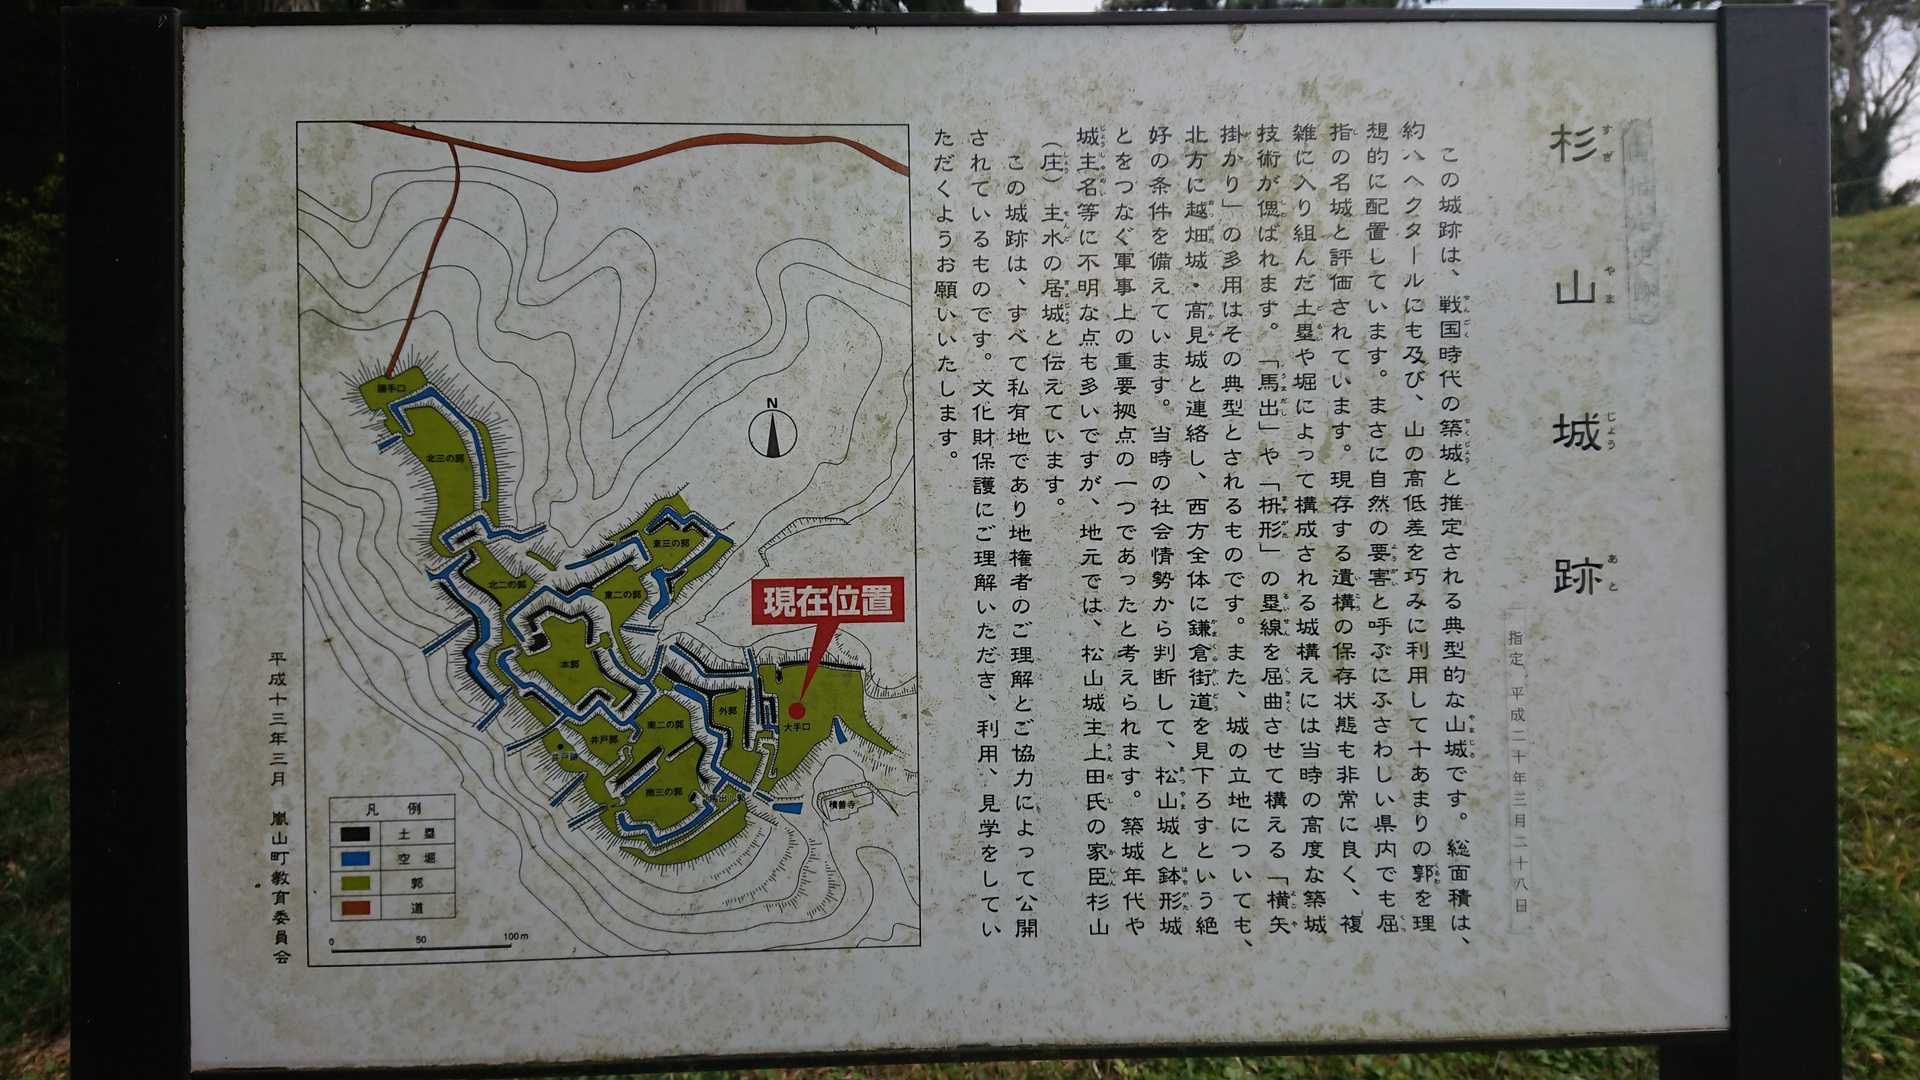 杉山城跡
すぎやまじょうあと
指定 平成二十年三月二十八日
この城跡は、戦国時代の築城と推定される典型的な山城です。総面積は、
約八ヘクタールにも及び、山の高低差を巧みに利用して十あまりの郭を理
想的に配置しています。まさに自然の要害と呼ぶにふさわしい県内でも屈
指の名城と評価されています。現存する遺構の保存状態も非常に良く、複
雑に入り組んだ土塁や堀によって構成される城構えには当時の高度な築城
技術が偲ばれます。「馬出」や「枡形」の塁線を屈曲させて構える「横矢
掛かり」の多用はその典型とされるものです。また、城の立地についても、
北方に越畑城・高見城と連絡し、西方全体に鎌倉街道を見下ろすという絶
好の条件を備えています。当時の社会情勢から判断して、松山城と鉢形城
とをつなぐ軍事上の重要拠点の一つであったと考えられます。築城年代や
城主名等に不明な点も多いですが、地元では、松山城主上田氏の家臣杉山
(庄)主水の居城と伝えています。
この城跡は、すべて私有地であり地権者のご理解とご協力によって公開
されているものです。文化財保護にご理解いただき、利用、見学をしてい
ただくようお願いいたします。
平成十三年三月 嵐山町教育委員会
N
現在位置
勝手口
北三の郭
北二の郭
東三の郭
東二の郭
本郭
外郭
大手口
南二の郭
井戸郭
井戸跡
南三の郭
馬出し郭
積善寺
凡例
土塁
空堀
郭
道
0 50 100m